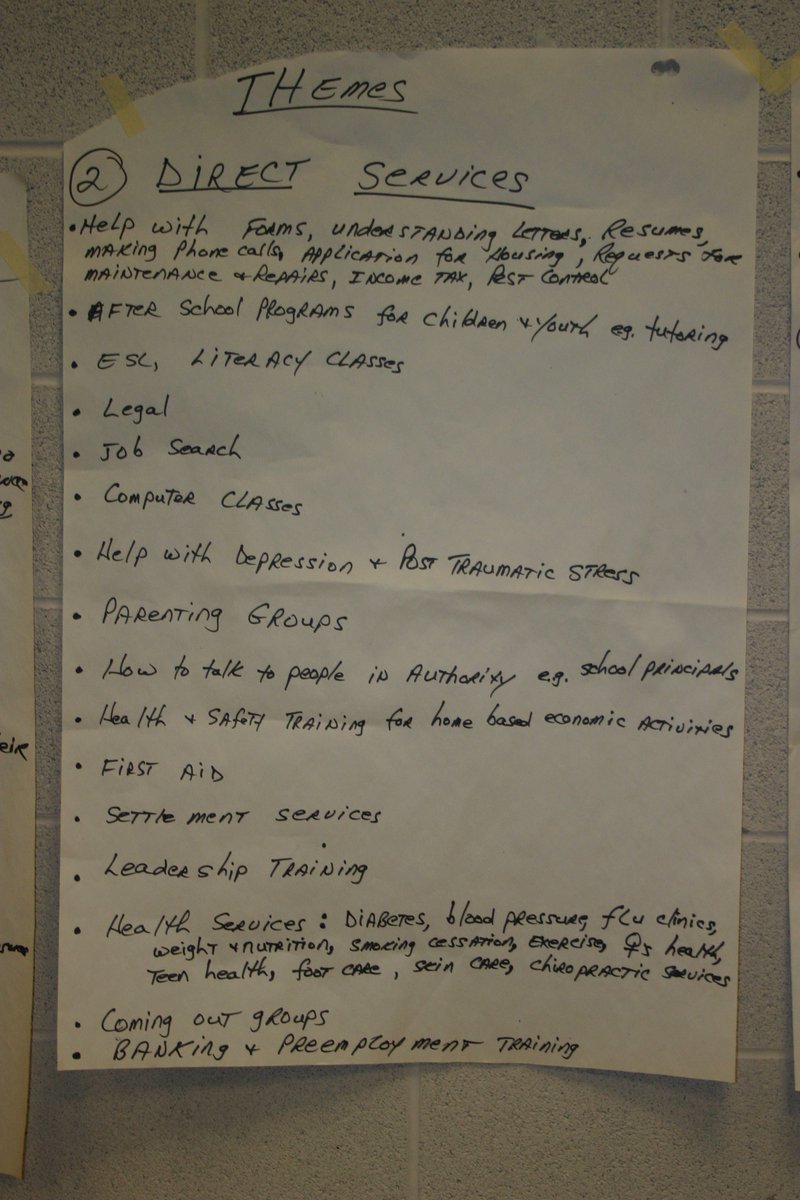 THEMES
② DIRECT SERVICES
• Help with FORMS, UNDERSTANDING LETTERS, RESUMES,
MAKING Phone calls, APPLICATION for Housing, Requests for
MAINTENANCE & REPAIRS, INCOME TAX, PEST CONTROL
• AFTER School PROGRAMS for children & youth eg. tutoring
• ESL, LITERACY CLASSES
• Legal
• Job Search
• Computer Classes
• Help with Depression & Post TRAUMATIC STRESS
• PARENTING GROUPS
• How to talk to people in Authority e.g. school principals
• Health & SAFETY TRAINING for home based economic ACTIVITIES
• FIRST AID
• Settlement services
• Leadership TRAINING
• Health Services: DIABETES, blood pressure, flu clinics,
weight & nutrition, smoking cessation, exercise, ♀s health,
Teen health, foot care, skin care, chiropractic services
• Coming out groups
• BANKING & PREEMPLOYMENT TRAINING